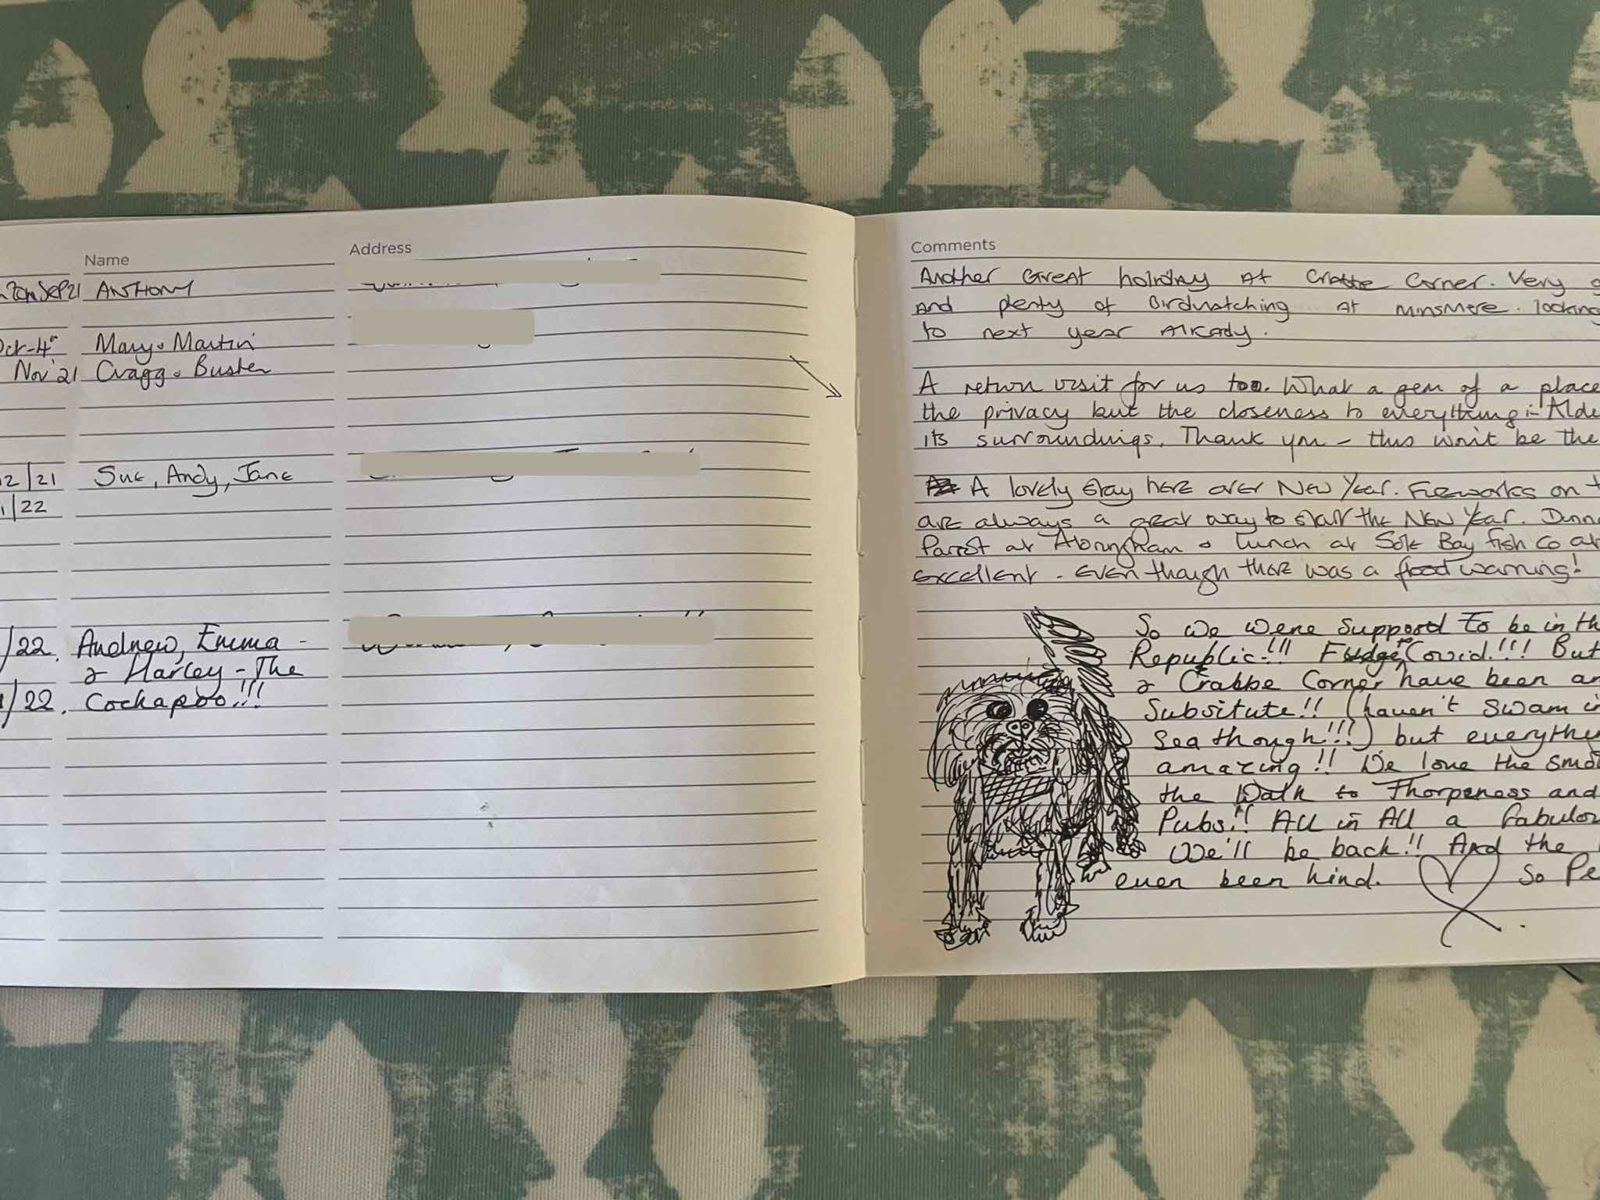 Name
Address
Sep 21 ANTHONY
Oct-4th Mary & Martin
Nov '21 Cragg & Buster
12/21 Sue, Andy, Jane
1/22
/22. Andrew, Emma -
& Harley - The
/22. Cockapoo!!!
Comments
Another Great holiday At Crabbe Corner. Very
And plenty of Birdwatching At Minsmere. looking
to next year Already.
A return visit for us too. What a gem of a place
the privacy but the closeness to everything :- Alde
its surroundings. Thank you - this won't be the
A lovely stay here over New Year. Fireworks on
are always a great way to start the New Year. Dinn
Parrot at Aldringham & Lunch at Sole Bay Fish Co at
excellent - even though there was a flood warning!
So we were supposd to be in th
Republic!!! Covid!!! But
& Crabbe Corner have been an
Subsitute!! (haven't swam in
Sea though!!!) but everythin
amazing!! We love the
the Walk to Thorpeness and
Pubs!! All in All a fabulou
We'll be back!! And the
even been kind. So Pe